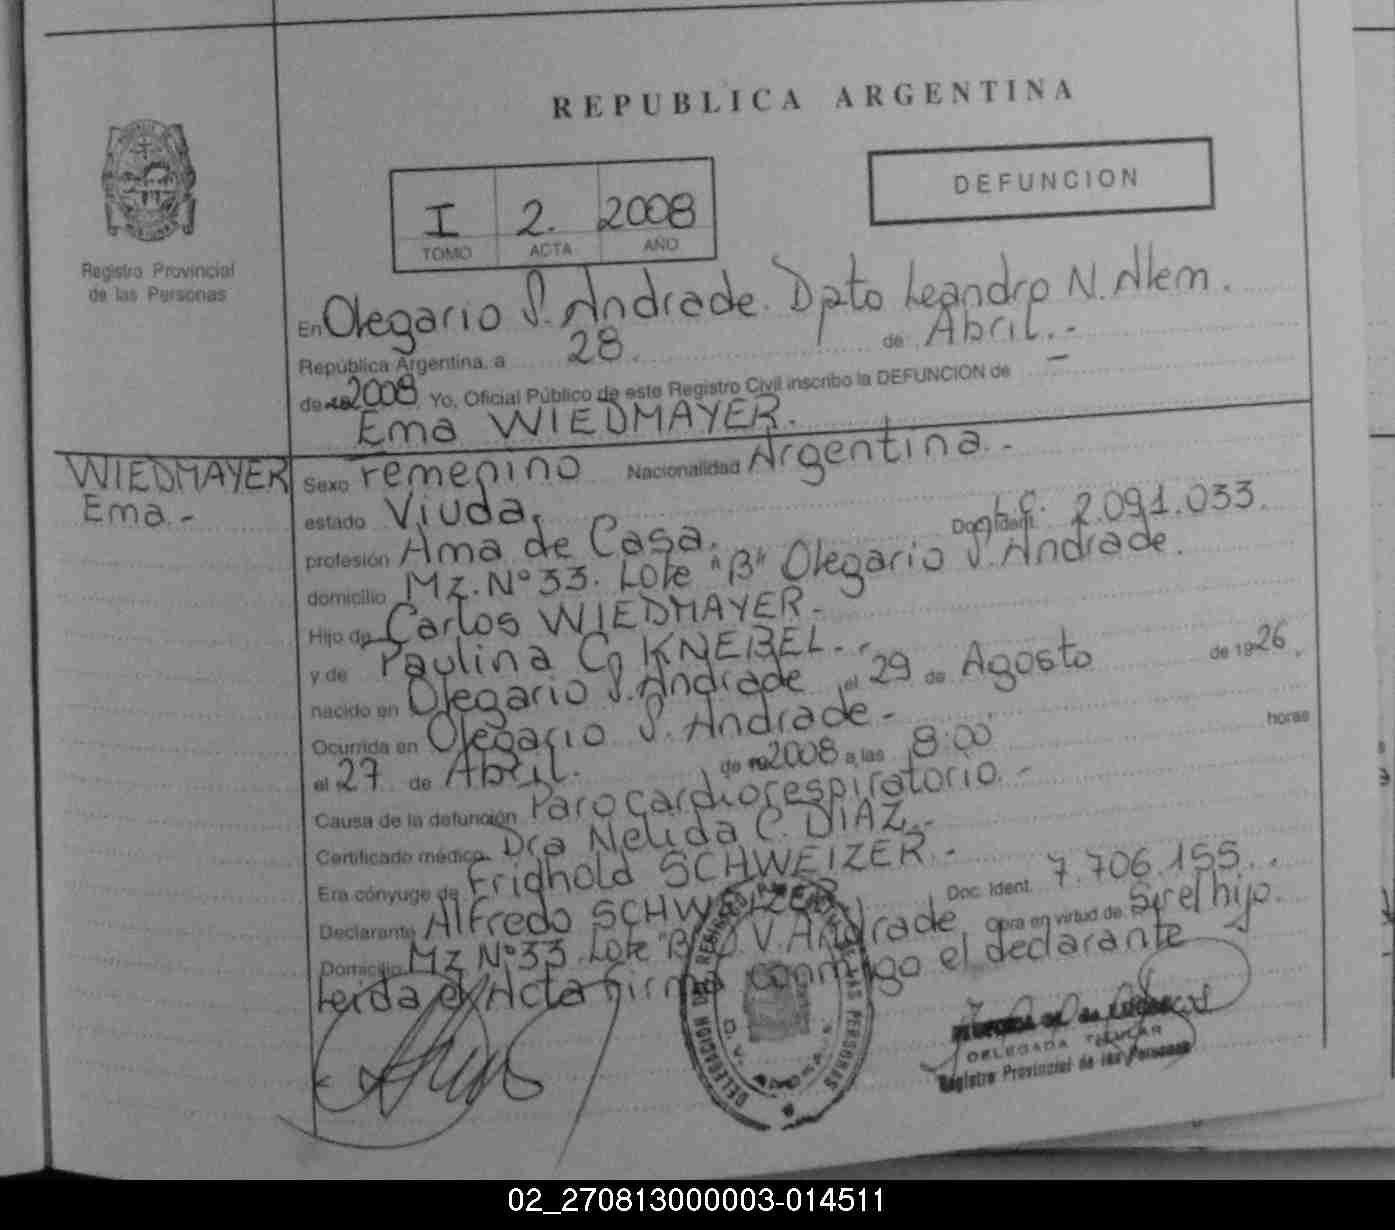 REPUBLICA ARGENTINA
DEFUNCION
I 2. 2008
TOMO ACTA AÑO
Registro Provincial
de las Personas
En Olegario V. Andrade. Dpto Leandro N. Alem.
República Argentina, a 28 de Abril.-
de 2008. Yo, Oficial Público de este Registro Civil inscribo la DEFUNCION de
Ema WIEDMAYER.
WIEDMAYER
Ema.-
Sexo Femenino Nacionalidad Argentina.-
estado Viuda.
profesión Ama de Casa. Doc. Ident. L.C. 2.091.033.
domicilio Mz. Nº 33. Lote "B" Olegario V. Andrade.
Hijo de Carlos WIEDMAYER.-
y de Paulina C. KNEBEL.-
nacido en Olegario V. Andrade el 29 de Agosto de 1926.
Ocurrida en Olegario V. Andrade.-
el 27 de Abril. de 2008 a las 8:00 horas
Causa de la defunción Paro cardiorespiratorio.-
Certificado médico Dra Nelida C. DIAZ.-
Era cónyuge de Fridhold SCHWEIZER.-
Declarante Alfredo SCHWEIZER Doc. Ident. 7.706.155..
Domicilio Mz Nº 33. Lote "B" O.V. Andrade obra en virtud de Ser el hijo.
Leida el Acta firma conmigo el declarante
DELEGACION DEL REGISTRO PROVINCIAL DE LAS PERSONAS
DELEGADA TITULAR
Registro Provincial de las Personas
02_270813000003-014511